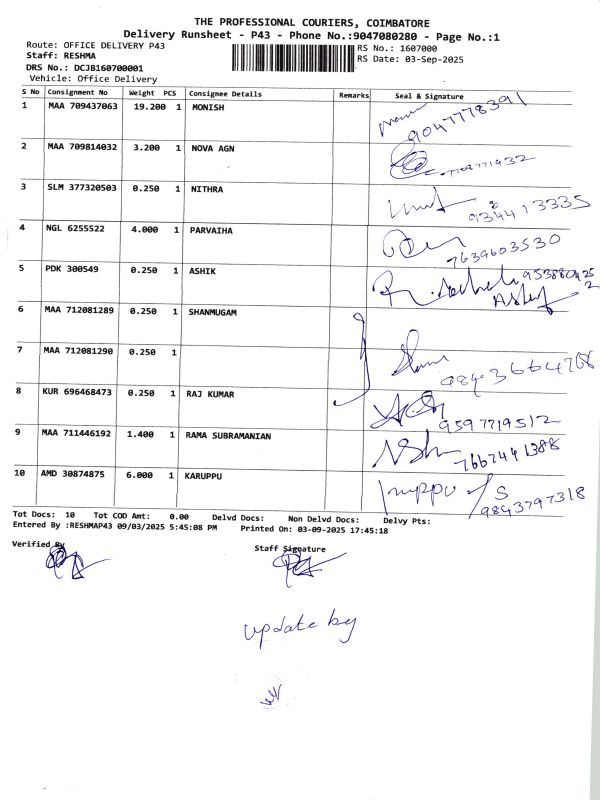 THE PROFESSIONAL COURIERS, COIMBATORE
Delivery Runsheet - P43 - Phone No.:9047080280 - Page No.:1
Route: OFFICE DELIVERY P43 RS No.: 1607000
Staff: RESHMA RS Date: 03-Sep-2025
DRS No.: DCJB160700001
Vehicle: Office Delivery
S No Consignment No Weight PCS Consignee Details Remarks Seal & Signature
1 MAA 709437063 19.200 1 MONISH
9047778391
2 MAA 709814032 3.200 1 NOVA AGN
3 SLM 377320503 0.250 1 NITHRA
9344413335
4 NGL 6255522 4.000 1 PARVAIHA
7639603530
5 PDK 300549 0.250 1 ASHIK
6 MAA 712081289 0.250 1 SHANMUGAM
7 MAA 712081290 0.250 1
8 KUR 696468473 0.250 1 RAJ KUMAR
9597719512
9 MAA 711446192 1.400 1 RAMA SUBRAMANIAN
7667441388
10 AMD 30874875 6.000 1 KARUPPU
9843797318
Tot Docs: 10 Tot COD Amt: 0.00 Delvd Docs: Non Delvd Docs: Delvy Pts:
Entered By :RESHMAP43 09/03/2025 5:45:08 PM Printed On: 03-09-2025 17:45:18
Verified By Staff Signature
update by